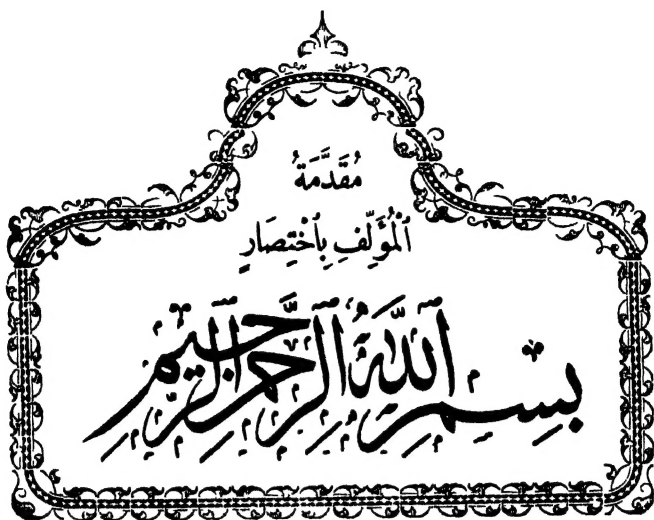 مُقَدَّمَةُ
ٱلْمُؤَلِّفِ بِٱخْتِصَارٍ
بِسْمِ اللَّهِ الرَّحْمَنِ الرَّحِيمِ